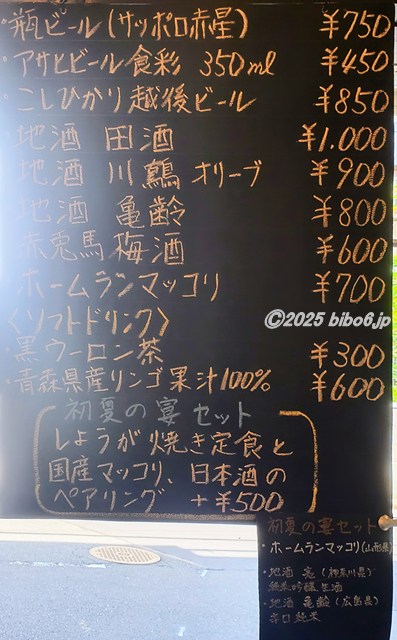 ・瓶ビール(サッポロ赤星) ¥750
・アサヒビール食彩 350ml ¥450
・こしひかり越後ビール ¥850
地酒 田酒 ¥1.000
地酒 川鶴 オリーブ ¥900
地酒 亀齢 ¥800
赤兎馬梅酒 ¥600
ホームランマッコリ ¥700
〈ソフトドリンク〉
©2025 bibo6.jp
黒ウーロン茶 ¥300
・青森県産リンゴ果汁100% ¥600
初夏の宴セット
しょうが焼き定食と
国産マッコリ、日本酒の
ペアリング +¥500
初夏の宴セット
・ホームランマッコリ(山形県)
・地酒 (神奈川県)
純米吟醸生酒
・地酒 亀齢(広島県)
辛口純米